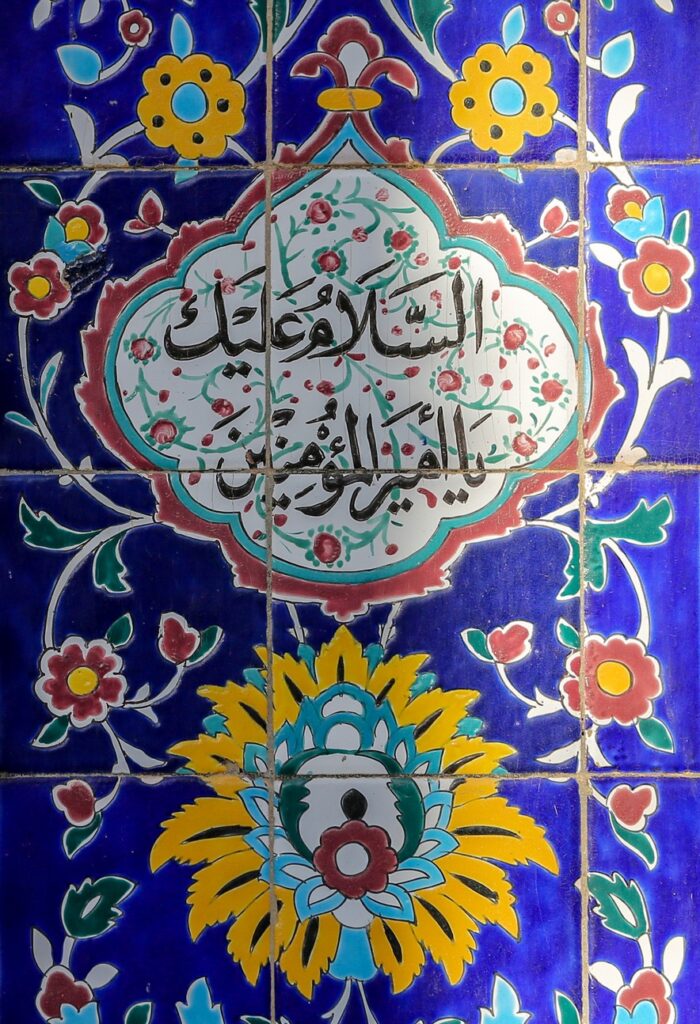 السَّلَامُ عَلَيْكَ
يَا أَمِيرَ المُؤْمِنِينَ